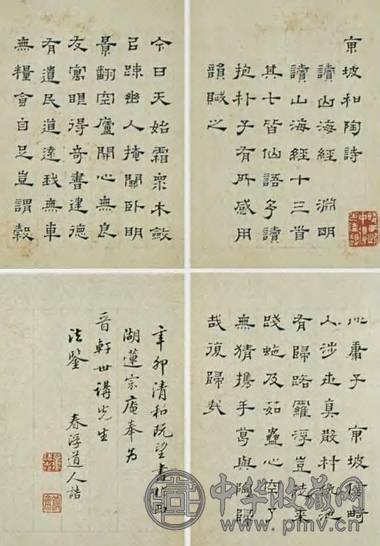 東坡和陶詩
讀山海經 淵明
讀山海經十三首
其七皆仙語予讀
抱朴子有所感用
韻賦之
今日天始霜眾木斂
㠯踈幽人掩關臥明
景翻空廬開心無良
友寓眼得奇書建德
有遺民道遠我無車
無糧食自足豈謂穀
此庸子 東坡信畸
人涉世真散材仇池
有歸路羅浮豈徒來
踐虵及茹蠱心空了
無猜攜手葛與陶歸
哉復歸哉
辛卯清和既望書於西
湖蓮宗庵奉為
晉軒世講先生
法鑒 春浮道人
中华收藏网
www.pmv.cn